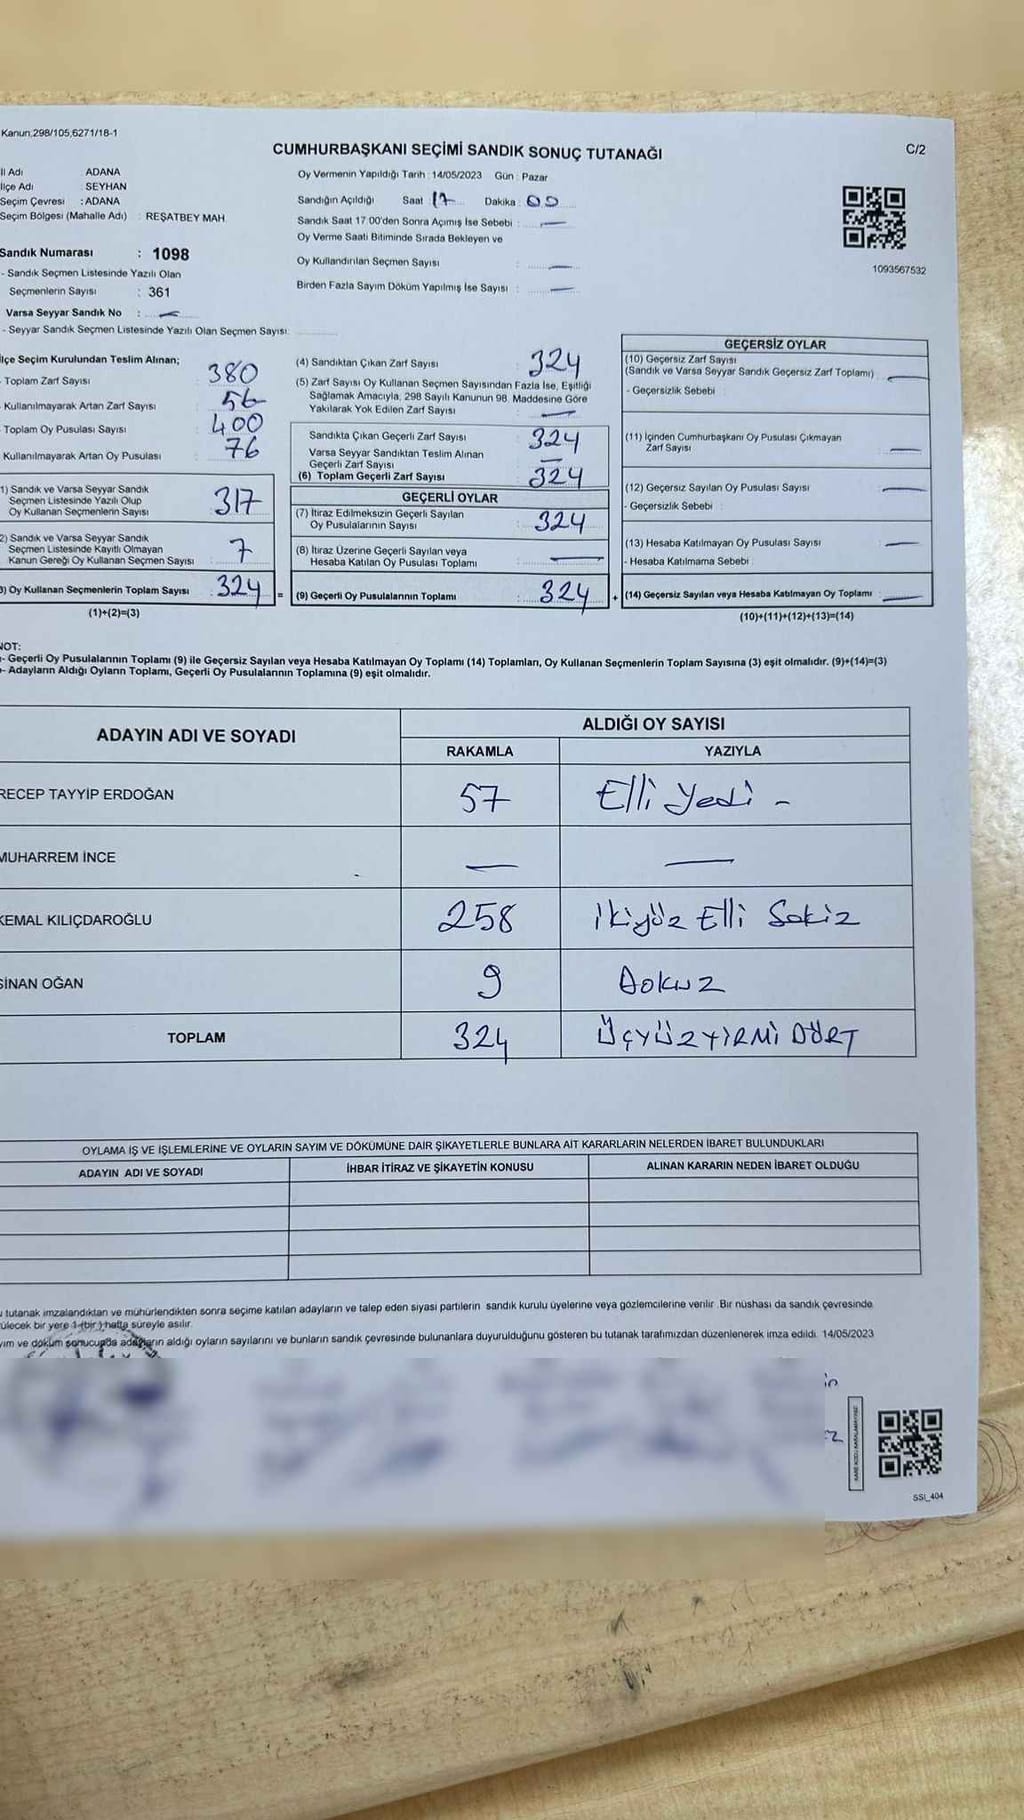 Kanun,298/105,6271/18-1
CUMHURBAŞKANI SEÇİMİ SANDIK SONUÇ TUTANAĞI
C/2
İl Adı ADANA
İlçe Adı : SEYHAN
Seçim Çevresi : ADANA
Seçim Bölgesi (Mahalle Adı) : REŞATBEY MAH.
Sandık Numarası : 1098
- Sandık Seçmen Listesinde Yazılı Olan
Seçmenlerin Sayısı : 361
Varsa Seyyar Sandık No : —
- Seyyar Sandık Seçmen Listesinde Yazılı Olan Seçmen Sayısı:
Oy Vermenin Yapıldığı Tarih : 14/05/2023 Gün : Pazar
Sandığın Açıldığı Saat 17 Dakika : 00
Sandık Saat 17.00'den Sonra Açımış İse Sebebi : —
Oy Verme Saati Bitiminde Sırada Bekleyen ve
Oy Kullandırılan Seçmen Sayısı : —
Birden Fazla Sayım Döküm Yapılmış İse Sayısı : —
1093567532
İlçe Seçim Kurulundan Teslim Alınan;
Toplam Zarf Sayısı 380
Kullanılmayarak Artan Zarf Sayısı 56
Toplam Oy Pusulası Sayısı 400
Kullanılmayarak Artan Oy Pusulası 76
1) Sandık ve Varsa Seyyar Sandık
Seçmen Listesinde Yazılı Olup
Oy Kullanan Seçmenlerin Sayısı : 317
2) Sandık ve Varsa Seyyar Sandık
Seçmen Listesinde Kayıtlı Olmayan
Kanun Gereği Oy Kullanan Seçmen Sayısı : 7
3) Oy Kullanan Seçmenlerin Toplam Sayısı : 324 =
(1)+(2)=(3)
(4) Sandıktan Çıkan Zarf Sayısı : 324
(5) Zarf Sayısı Oy Kullanan Seçmen Sayısından Fazla İse, Eşitliği
Sağlamak Amacıyla, 298 Sayılı Kanunun 98. Maddesine Göre
Yakılarak Yok Edilen Zarf Sayısı —
Sandıkta Çıkan Geçerli Zarf Sayısı 324
Varsa Seyyar Sandıktan Teslim Alınan
Geçerli Zarf Sayısı —
(6) Toplam Geçerli Zarf Sayısı 324
GEÇERLİ OYLAR
(7) İtiraz Edilmeksizin Geçerli Sayılan
Oy Pusulalarının Sayısı : 324
(8) İtiraz Üzerine Geçerli Sayılan veya
Hesaba Katılan Oy Pusulası Toplamı : —
(9) Geçerli Oy Pusulalarının Toplamı : 324 +
GEÇERSİZ OYLAR
(10) Geçersiz Zarf Sayısı
(Sandık ve Varsa Seyyar Sandık Geçersiz Zarf Toplamı) : —
- Geçersizlik Sebebi :
(11) İçinden Cumhurbaşkanı Oy Pusulası Çıkmayan
Zarf Sayısı : —
(12) Geçersiz Sayılan Oy Pusulası Sayısı : —
- Geçersizlik Sebebi :
(13) Hesaba Katılmayan Oy Pusulası Sayısı : —
- Hesaba Katılmama Sebebi :
(14) Geçersiz Sayılan veya Hesaba Katılmayan Oy Toplamı : —
(10)+(11)+(12)+(13)=(14)
NOT:
- Geçerli Oy Pusulalarının Toplamı (9) ile Geçersiz Sayılan veya Hesaba Katılmayan Oy Toplamı (14) Toplamları, Oy Kullanan Seçmenlerin Toplam Sayısına (3) eşit olmalıdır. (9)+(14)=(3)
- Adayların Aldığı Oyların Toplamı, Geçerli Oy Pusulalarının Toplamına (9) eşit olmalıdır.
ADAYIN ADI VE SOYADI
ALDIĞI OY SAYISI
RAKAMLA YAZIYLA
RECEP TAYYİP ERDOĞAN 57 Elli Yedi -
MUHARREM İNCE — —
KEMAL KILIÇDAROĞLU 258 ikiyüz Elli Sekiz
SİNAN OĞAN 9 Dokuz
TOPLAM 324 ÜÇYÜZYİRMİ DÖRT
OYLAMA İŞ VE İŞLEMLERİNE VE OYLARIN SAYIM VE DÖKÜMÜNE DAİR ŞİKAYETLERLE BUNLARA AİT KARARLARIN NELERDEN İBARET BULUNDUKLARI
ADAYIN ADI VE SOYADI İHBAR İTİRAZ VE ŞİKAYETİN KONUSU ALINAN KARARIN NEDEN İBARET OLDUĞU
tutanak imzalandıktan ve mühürlendikten sonra seçime katılan adayların ve talep eden siyasi partilerin sandık kurulu üyelerine veya gözlemcilerine verilir. Bir nüshası da sandık çevresinde
ülecek bir yere 1 (bir) hafta süreyle asılır.
yım ve döküm sonucunda adayların aldığı oyların sayılarını ve bunların sandık çevresinde bulunanlara duyurulduğunu gösteren bu tutanak tarafımızdan düzenlenerek imza edildi. 14/05/2023
SSI_404